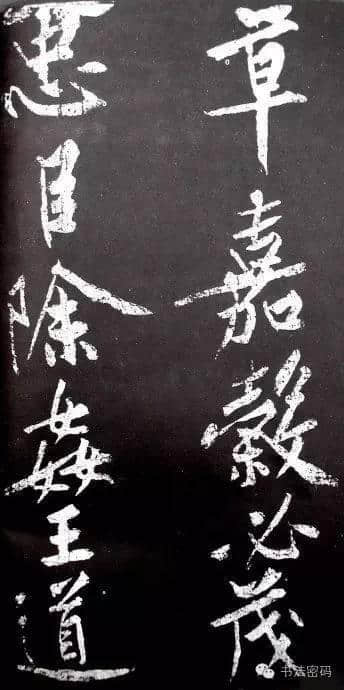 草嘉穀必茂
忠臣除姦王道
书法密码